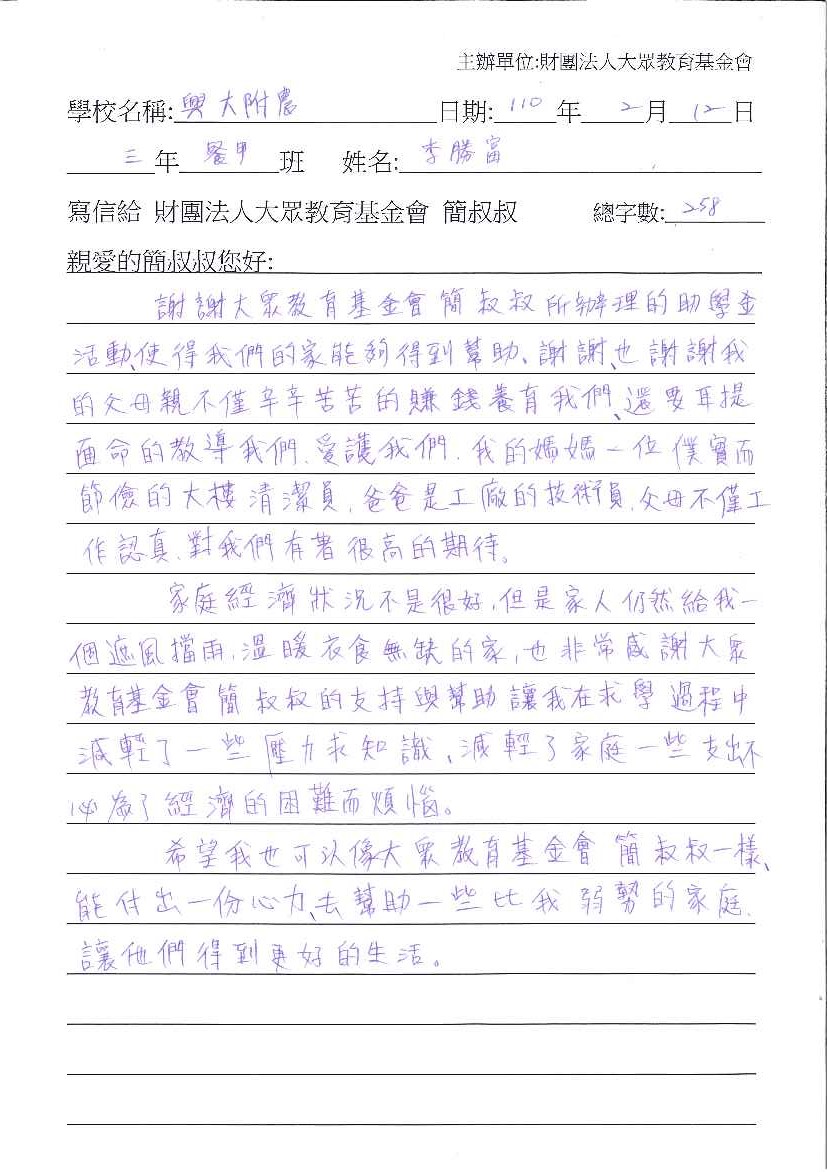 主辦單位:財團法人大眾教育基金會
學校名稱:興大附農 日期:110年2月12日
三年餐甲班 姓名:李勝富
寫信給 財團法人大眾教育基金會 簡叔叔 總字數:258
親愛的簡叔叔您好:
謝謝大眾教育基金會簡叔叔所辦理的助學金
活動、使得我們的家能夠得到幫助、謝謝、也謝謝我
的父母親不僅辛辛苦苦的賺錢養育我們、還要耳提
面命的教導我們、愛護我們、我的媽媽一位僕實而
節儉的大樓清潔員、爸爸是工廠的技術員、父母不僅工
作認真、對我們有著很高的期待。
家庭經濟狀況不是很好,但是家人仍然給我一
個遮風擋雨,溫暖衣食無缺的家,也非常感謝大眾
教育基金會簡叔叔的支持與幫助讓我在求學過程中
減輕了一些壓力求知識、減輕了家庭一些支出不
必為了經濟的困難而煩惱。
希望我也可以像大眾教育基金會簡叔叔一樣、
能付出一份心力、去幫助一些比我弱勢的家庭、
讓他們得到更好的生活。